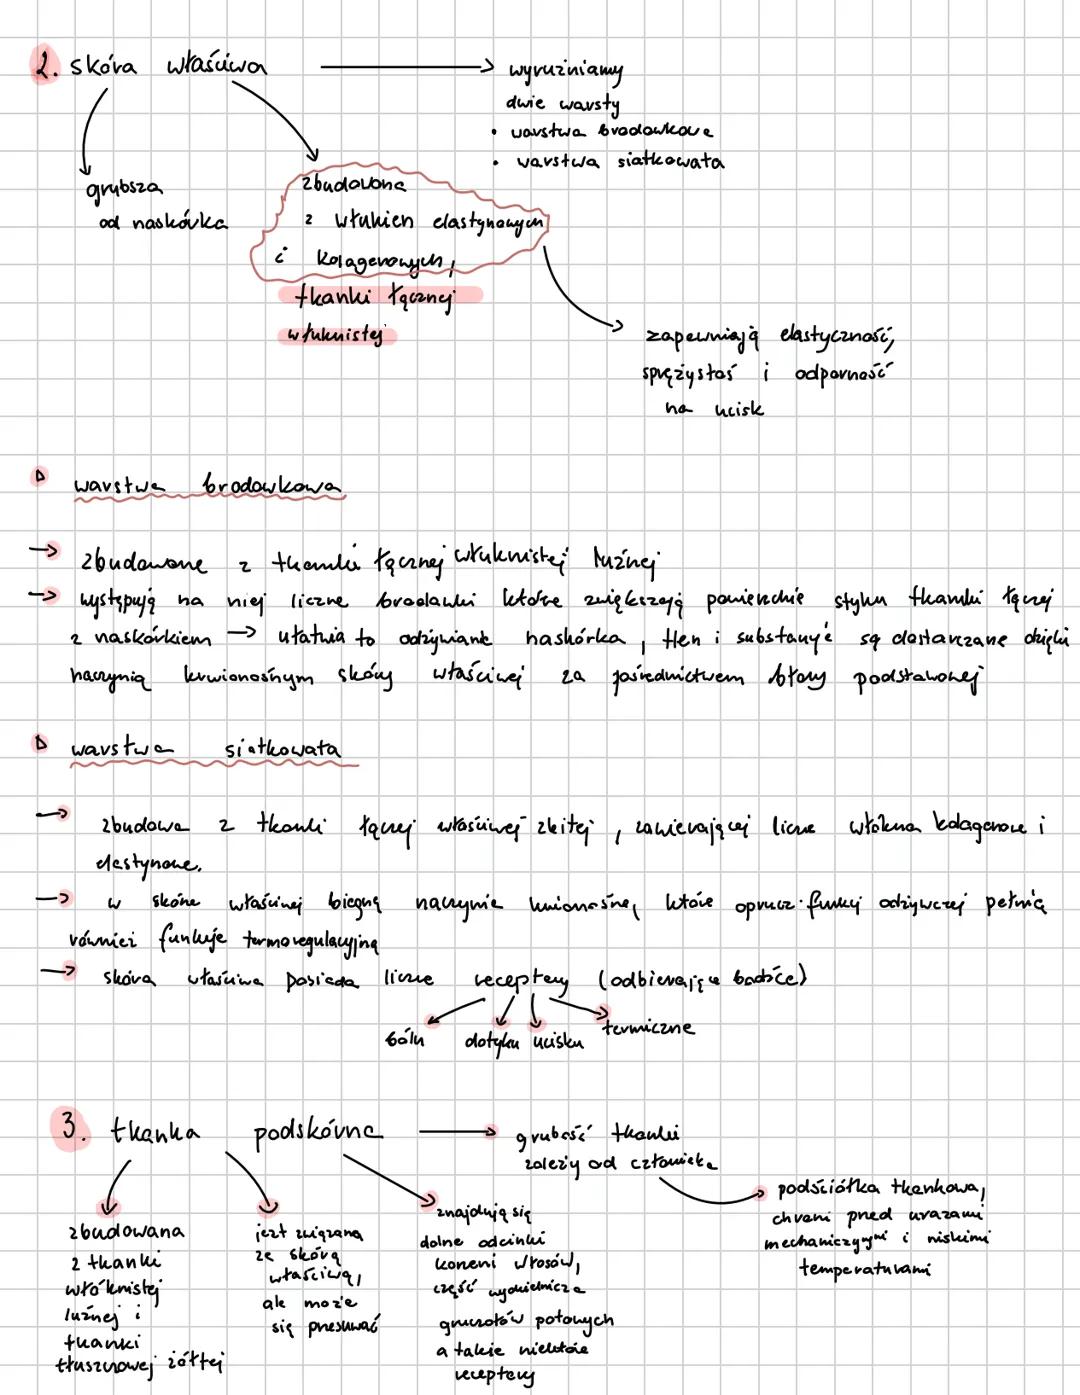 2. skóra właściwa
wyrużniamy
dwie warsty
• warstwa brodawkowa
• warstwa siatkowata
grubsza
od naskórka
zbudowana
z włukien elastynowych
i kolagenowych,
tkanki łącznej
włuknistej
zapewniają elastyczność,
sprężystoś i odporność
na ucisk
warstwa brodawkowa
→ zbudowane z tkanki łącznej włuknistej luźnej
→ występują na niej liczne brodawki które zwiększają powierzchnie styku tkanki łącznej
z naskórkiem → ułatwia to odżywianie naskórka, tlen i substancje są dostarczane dzięki
naczynią krwionośnym skóry właściwej za pośrednictwem błony podstawowej
warstwa siatkowata
→ zbudowa z tkanki łącznej właściwej zbitej, zawierającej liczne włókna kolagenowe i
elastynowe.
→ w skórze właściwej biegną naczynia krwionośne, które oprucz funkcji odżywczej pełnią
również funkcje termoregulacyjną
→ skóra właściwa posiada liczne receptory (odbierające bodźce)
bólu dotyku ucisku termiczne
3. tkanka podskórna
grubość tkanki
zależy od człowieka
podściółka tkankowa,
chroni przed urazami
mechanicznymi i niskimi
temperaturami
zbudowana
z tkanki
włóknistej
luźnej i
tkanki
tłuszczowej żółtej
jezt związana
ze skórą
właściwą,
ale może
się przesuwać
znajdują się
dolne odcinki
korzeni włosów,
część wydzielnicza
gruczołów potowych
a także niektóre
receptory